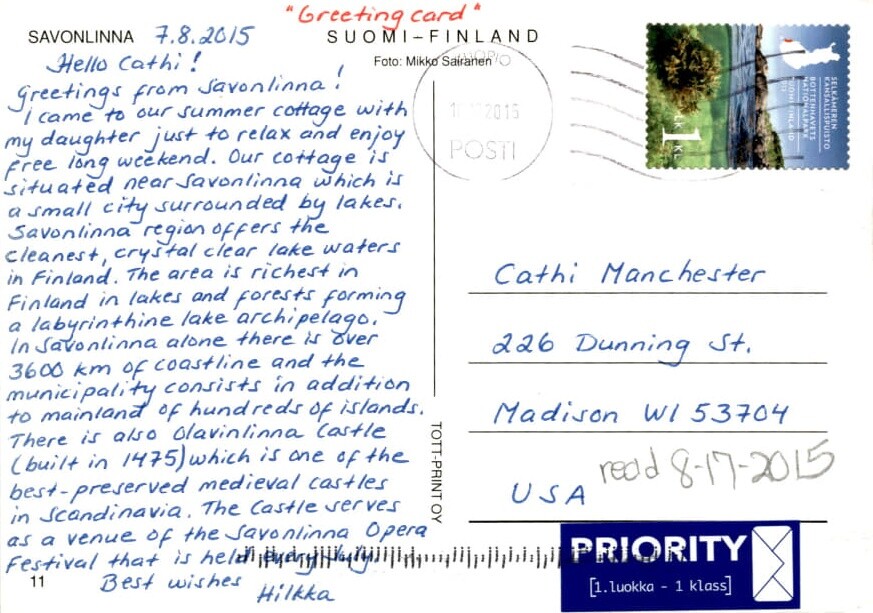 "Greeting card"
SAVONLINNA 7.8.2015
SUOMI–FINLAND
Foto: Mikko Sairanen
Hello Cathi!
Greetings from Savonlinna!
I came to our summer cottage with
my daughter just to relax and enjoy
free long weekend. Our cottage is
situated near Savonlinna which is
a small city surrounded by lakes.
Savonlinna region offers the
cleanest, crystal clear lake waters
in Finland. The area is richest in
Finland in lakes and forests forming
a labyrinthine lake archipelago.
In Savonlinna alone there is over
3600 km of coastline and the
municipality consists in addition
to mainland of hundreds of islands.
There is also Olavinlinna Castle
(built in 1475) which is one of the
best-preserved medieval castles
in Scandinavia. The Castle serves
as a venue of the Savonlinna Opera
Festival that is held every July.
Best wishes
Hilkka
11
TOTT-PRINT OY
2015
POSTI
SELKÄMEREN
KANSALLISPUISTO
BOTTENHAVETS
NATIONALPARK
SUOMI FINLAND
1 LK KL
Cathi Manchester
226 Dunning St.
Madison WI 53704
USA
recd 8-17-2015
PRIORITY
[1.luokka - 1 klass]